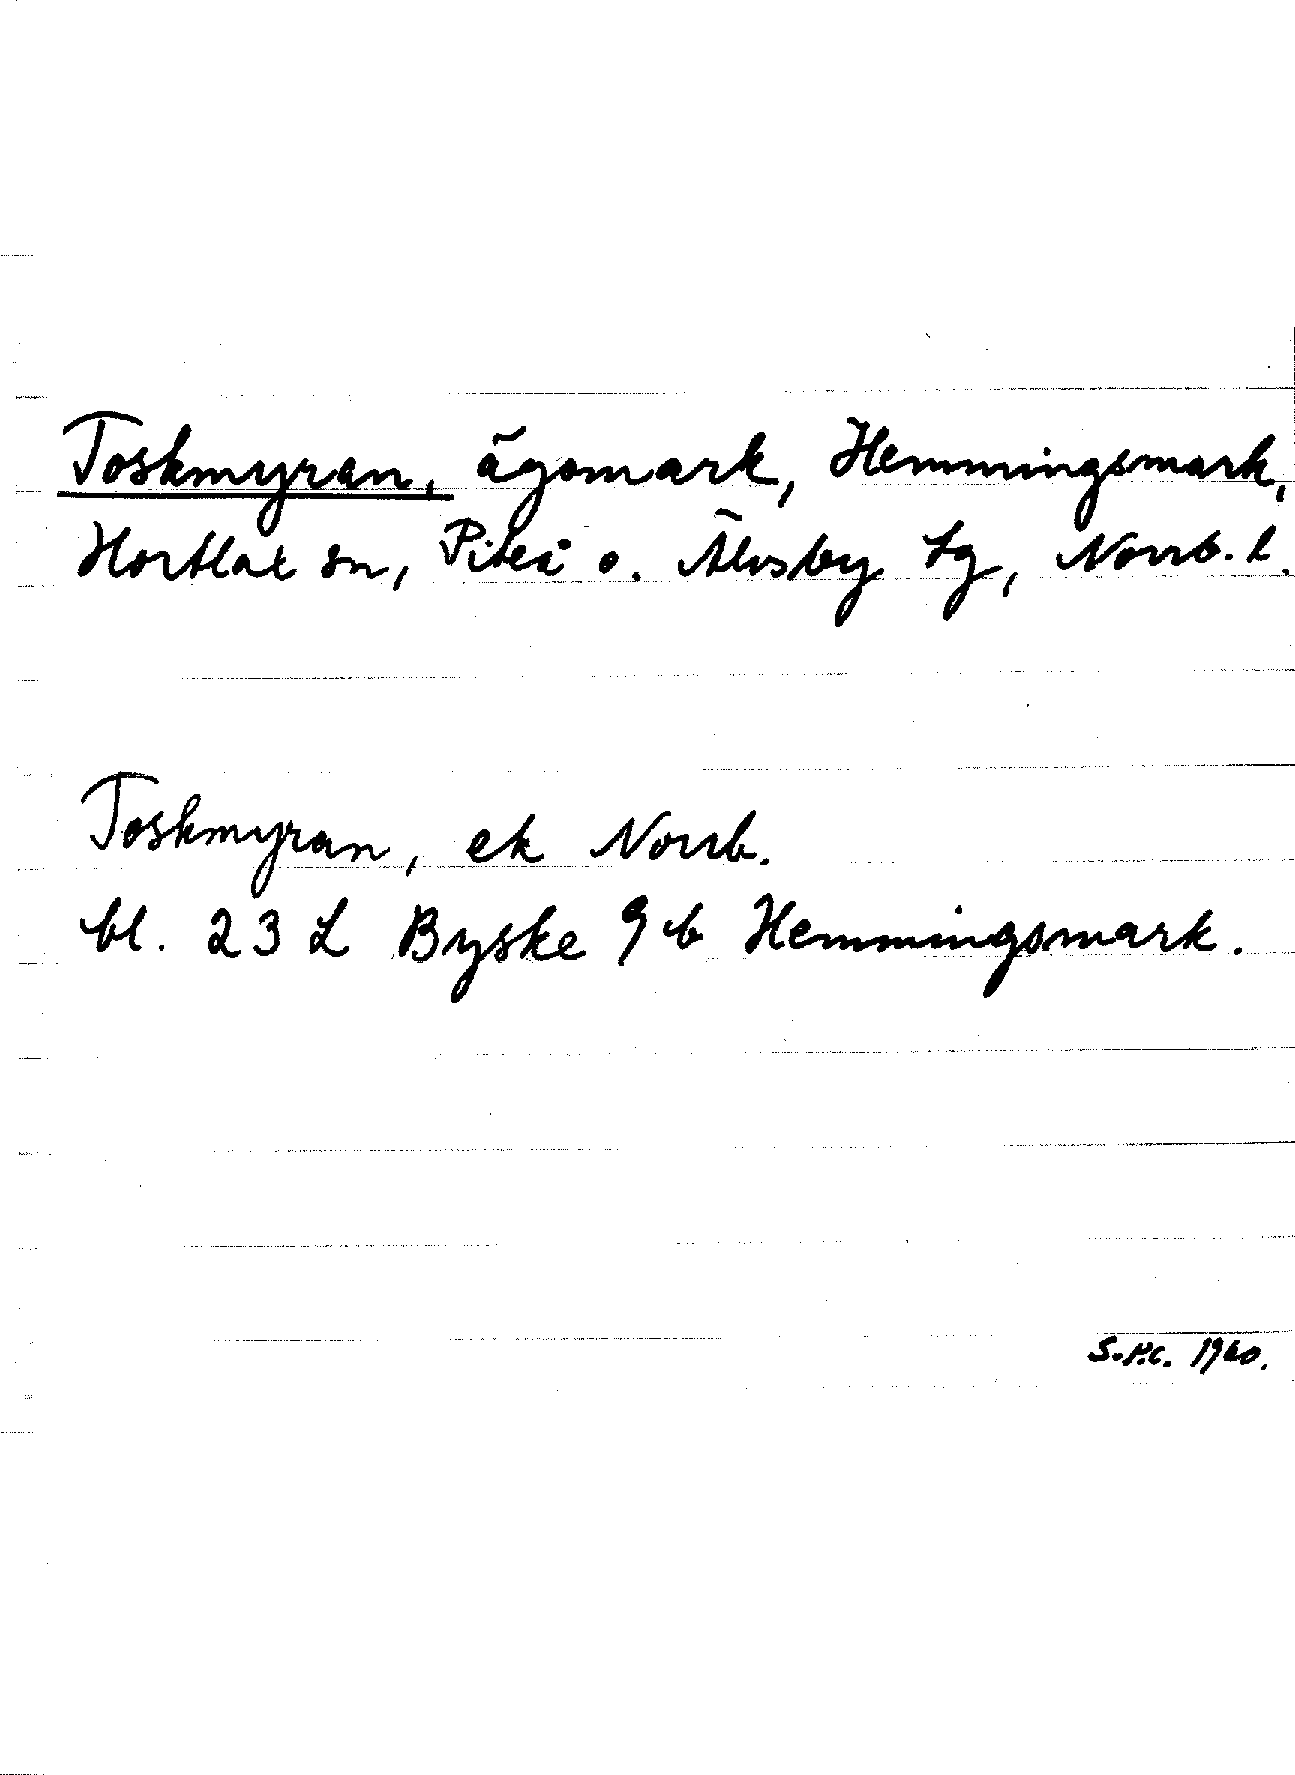 Toskmyran, ägomark, Hemmingsmark,
Hortlax sn, Piteå o. Älvsby tg, Norrb. l.
Toskmyran, ek Norrb.
bl. 23 L Byske 9 b Hemmingsmark.
S.P.C. 1960.